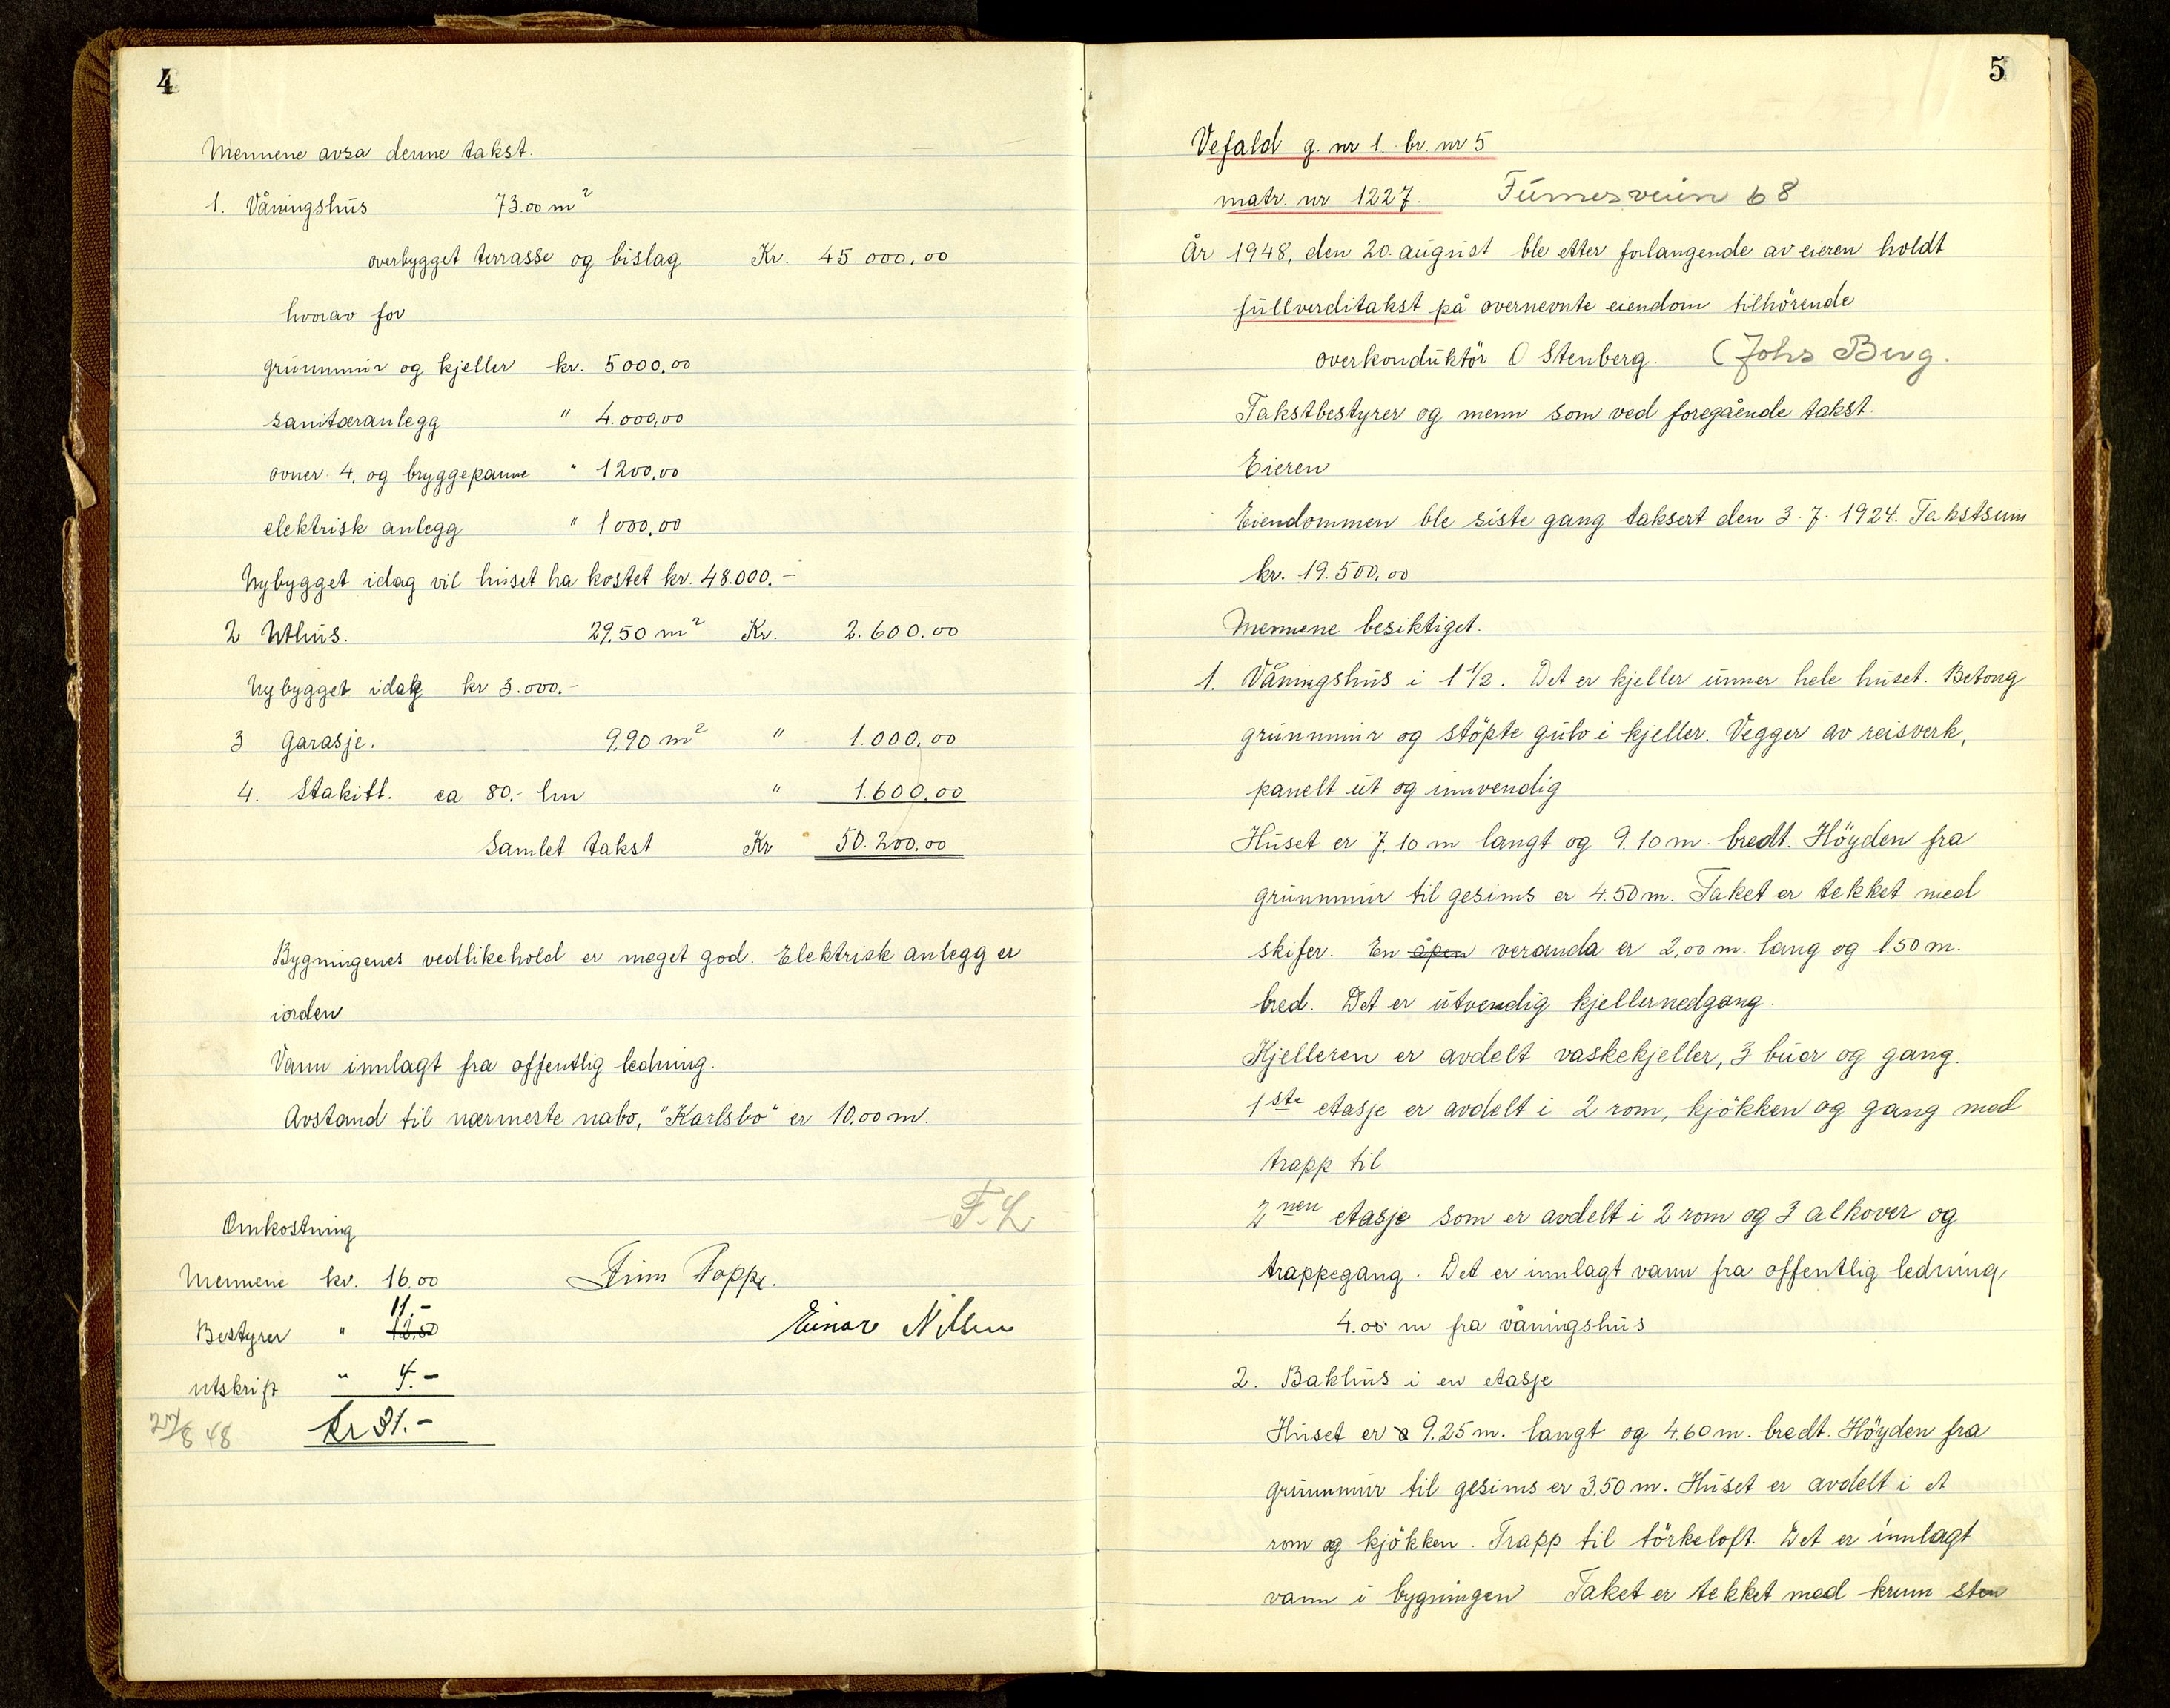 4
Mennene avsa denne takst.
1. Våningshus 73.00 m²
overbygget terrasse og bislag Kr. 45.000,00
hvorav for
grunnmur og kjeller kr. 5000,00
sanitæranlegg " 4.000,00
ovner 4, og bryggepanne " 1200,00
elektrisk anlegg " 1000,00
Nybygget idag vil huset ha kostet kr. 48.000.-
2 Uthus. 29,50 m² Kr. 2.600.00
Nybygget idag kr 3.000.-
3 Garasje. 9,90 m² " 1.000,00
4. Stakitt. ca 80.- lm " 1.600,00
Samlet takst Kr 50.200,00
Bygningenes vedlikehold er meget god. Elektrisk anlegg er
iorden
Vann innlagt fra offentlig ledning.
Avstand til nærmeste nabo, "Karlsbo" er 10,00 m.
F.L.
Omkostning
Mennene kr. 16.00
Finn Toppe.
11.-
Bestyrer " 12.50
Einar Nilsen
utskrift " 4.-
27/8 48 kr 31.-
5
Vefald g. nr 1. br. nr 5
matr. nr 1227. Furnesveien 68
År 1948, den 20. august ble etter forlangende av eieren holdt
fullverditakst på overnevnte eiendom tilhörende
overkonduktör O Stenberg. (Johs Berg.
Takstbestyrer og menn som ved foregående takst.
Eieren
Eiendommen ble siste gang taksert den 3.7.1924. Takstsum
kr. 19.500,00
Mennene besiktiget.
1. Våningshus i 1 1/2. Det er kjeller unner hele huset. Betong
grunnmur og stöpte gulv i kjeller. Vegger av reisverk,
panelt ut og innvendig
Huset er 7,10 m langt og 9.10 m. bredt. Höyden fra
grunnmur til gesims er 4.50 m. Taket er tekket med
skifer. En åpen veranda er 2,00 m. lang og 1.50 m.
bred. Det er utvendig kjellernedgang.
Kjelleren er avdelt vaskekjeller, 3 buer og gang.
1ste etasje er avdelt i 2 rom, kjökken og gang med
trapp til
2nen etasje som er avdelt i 2 rom og 3 alkover og
trappegang. Det er innlagt vann fra offentlig ledning,
4.00 m fra våningshus
2. Bakhus i en etasje
Huset er 9.25 m. langt og 4.60 m. bredt. Höyden fra
grunnmur til gesims er 3.50 m. Huset er avdelt i et
rom og kjökken. Trapp til törkeloft. Det er innlagt
vann i bygningen Taket er tekket med krum sten